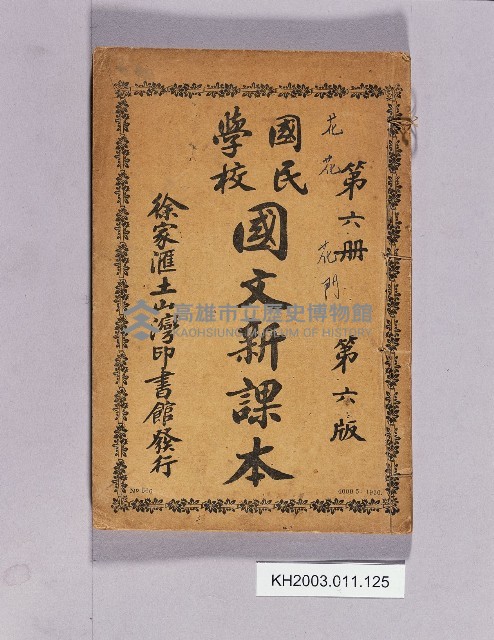 第六册 第六版
花 花 花門
國民
學校
國文新課本
徐家滙土山灣印書館發行
高雄市立歷史博物館
KAOHSIUNG MUSEUM OF HISTORY
KH2003.011.125